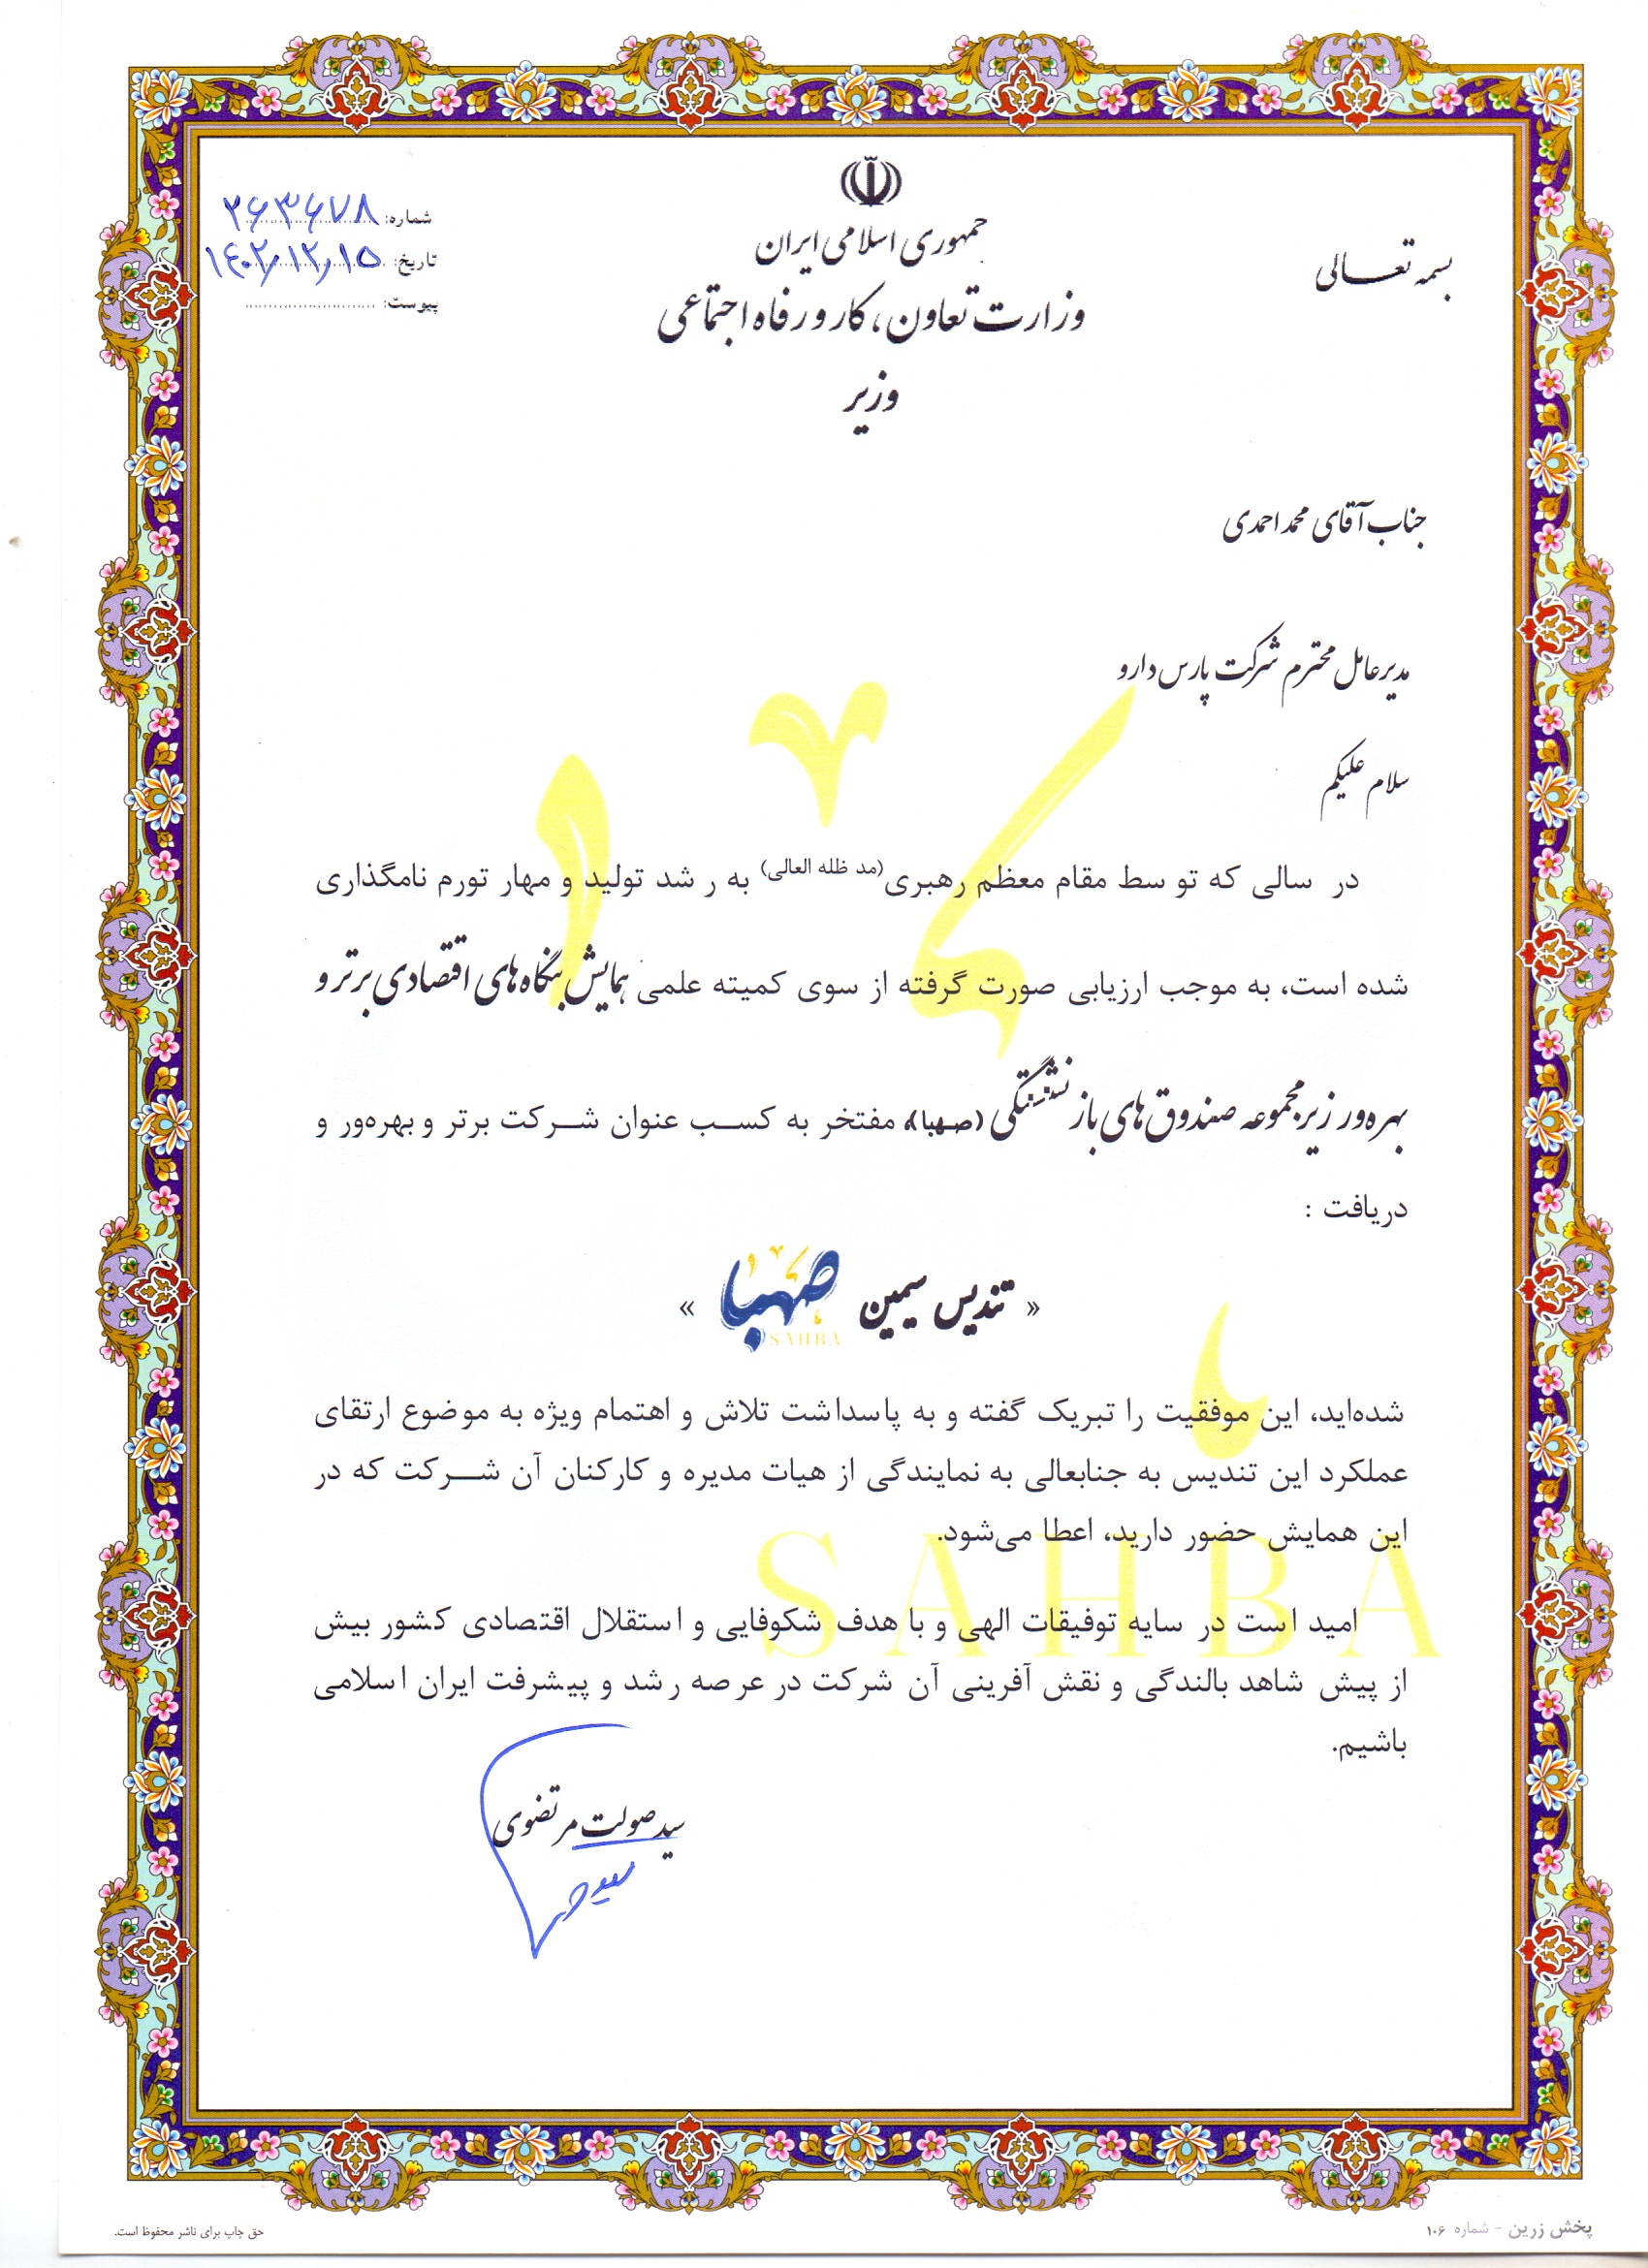 بسمه تعالی
جمهوری اسلامی ایران
وزارت تعاون، کار و رفاه اجتماعی
وزیر
شماره: ۲۶۳۶۷۸
تاریخ: ۱۴۰۲,۱۲,۱۵
پیوست:
جناب آقای محمد احمدی
مدیرعامل محترم شرکت پارس دارو
سلام علیکم
در سالی که توسط مقام معظم رهبری (مد ظله العالی) به رشد تولید و مهار تورم نامگذاری
شده است، به موجب ارزیابی صورت گرفته از سوی کمیته علمی همایش بنگاه‌های اقتصادی برتر و
بهره‌ور زیرمجموعه صندوق‌های بازنشستگی (صهبا)، مفتخر به کسب عنوان شرکت برتر و بهره‌ور و
دریافت :
« تندیس سیمین صهبا »
SAHBA
شده‌اید، این موفقیت را تبریک گفته و به پاسداشت تلاش و اهتمام ویژه به موضوع ارتقای
عملکرد این تندیس به جنابعالی به نمایندگی از هیات مدیره و کارکنان آن شرکت که در
این همایش حضور دارید، اعطا می‌شود.
SAHBA
امید است در سایه توفیقات الهی و با هدف شکوفایی و استقلال اقتصادی کشور بیش
از پیش شاهد بالندگی و نقش آفرینی آن شرکت در عرصه رشد و پیشرفت ایران اسلامی
باشیم.
سید صولت مرتضوی
پخش زرین - شماره ۱۰۶
حق چاپ برای ناشر محفوظ است.